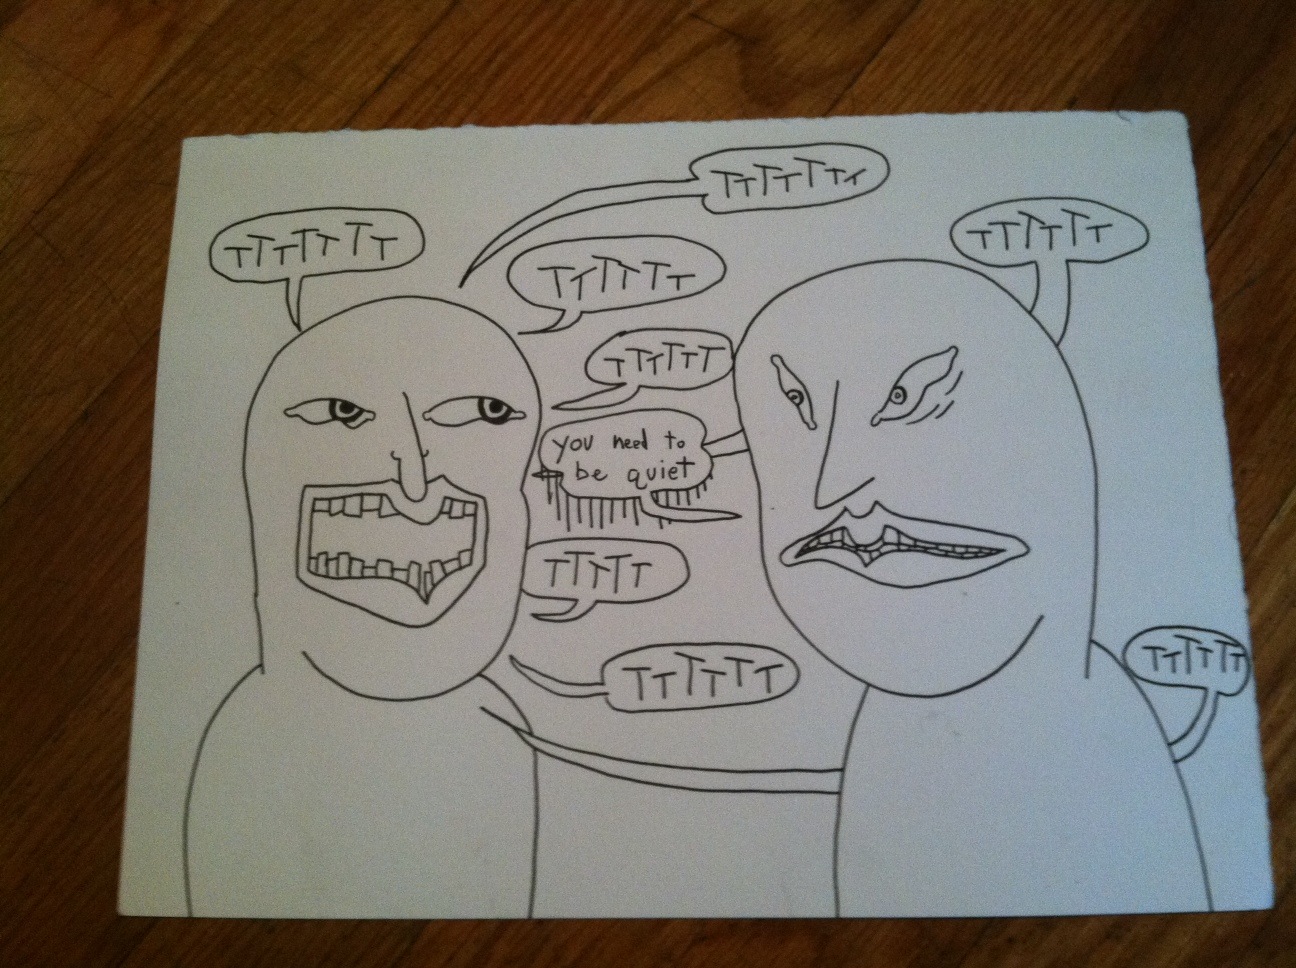 TTTTTTT
TTTTTTT
TTTTT
TTTTTT
TTTTTT
you need to
be quiet
TTTTT
TTTTTT
TTTTT